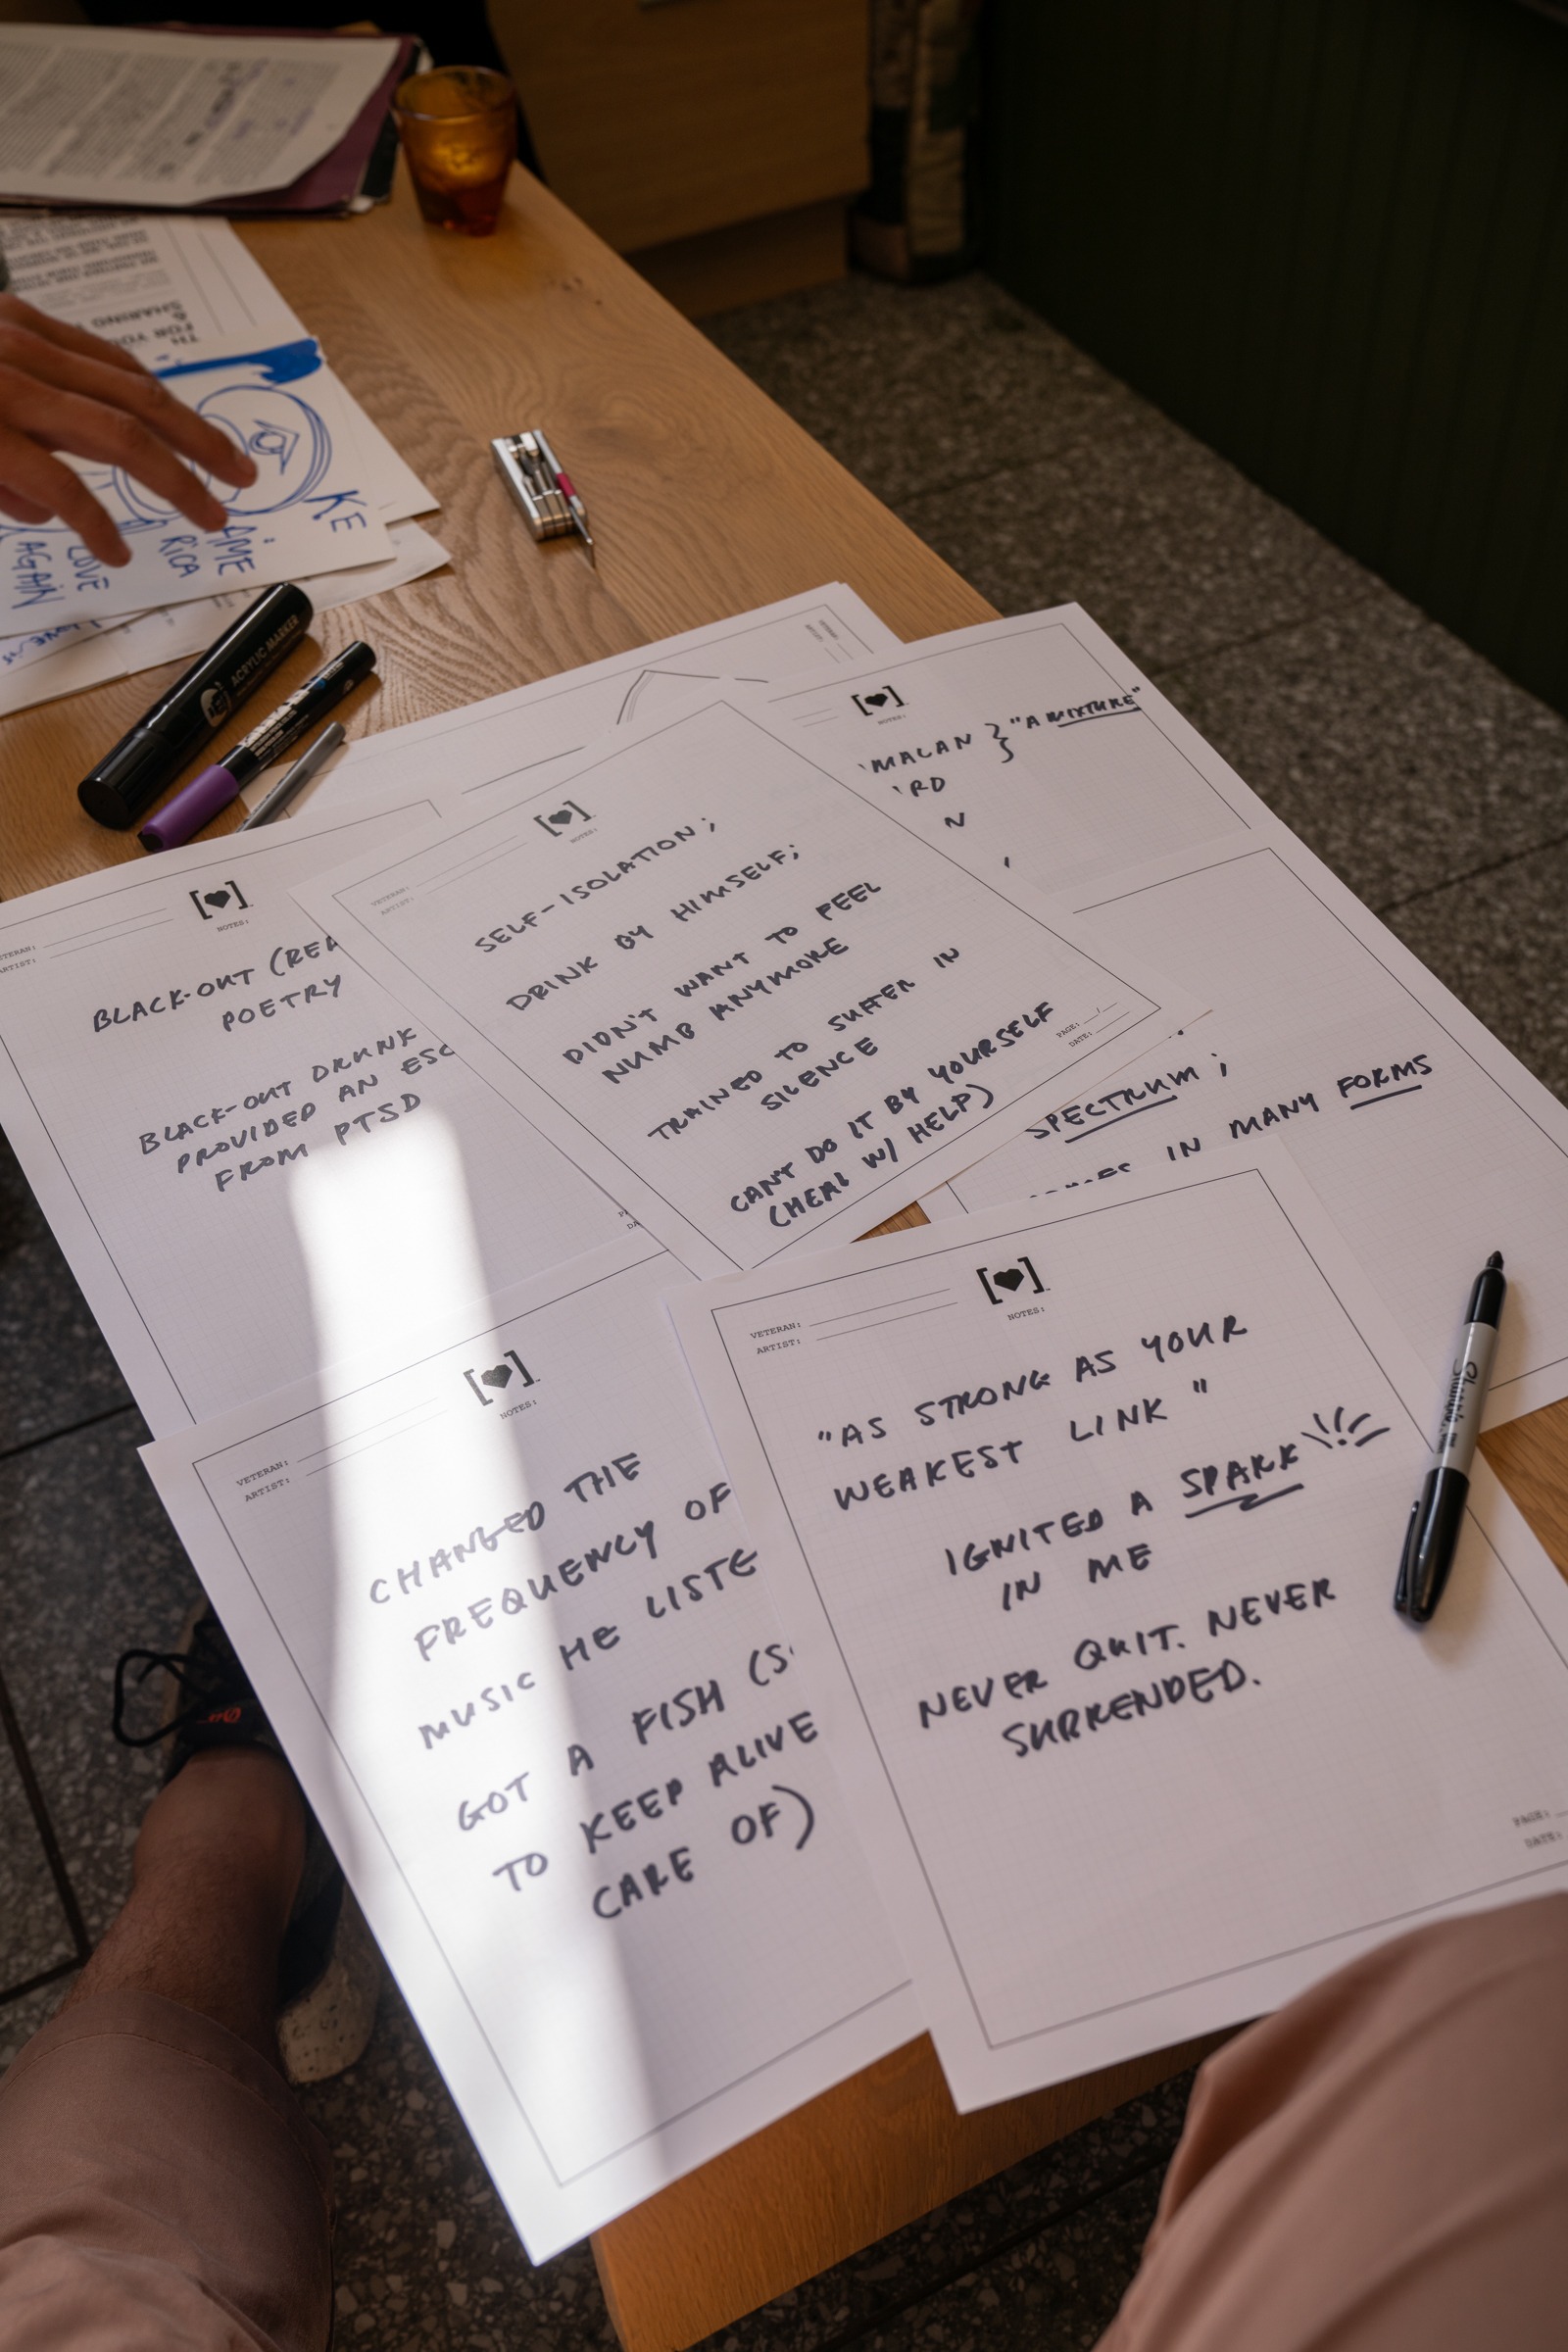 KE
AME
RICA
LOVE
AGAIN
ACRYLIC MARKER
NOTES:
MALAN } "A MIXTURE"
RD
N
VETERAN:
ARTIST:
NOTES:
SELF-ISOLATION;
DRINK BY HIMSELF;
DIDN'T WANT TO FEEL
NUMB ANYMORE
TRAINED TO SUFFER IN
SILENCE
CAN'T DO IT BY YOURSELF
(HEAL W/ HELP)
PAGE: /
DATE:
VETERAN:
ARTIST:
NOTES:
BLACK-OUT (REA
POETRY
BLACK-OUT DRUNK
PROVIDED AN ESC
FROM PTSD
SPECTRUM;
IN MANY FORMS
VETERAN:
ARTIST:
NOTES:
CHANGED THE
FREQUENCY OF
MUSIC HE LISTE
GOT A FISH (S
TO KEEP ALIVE
CARE OF)
VETERAN:
ARTIST:
NOTES:
"AS STRONG AS YOUR
WEAKEST LINK"
IGNITED A SPARK
IN ME
NEVER QUIT. NEVER
SURRENDED.
PAGE:
DATE: